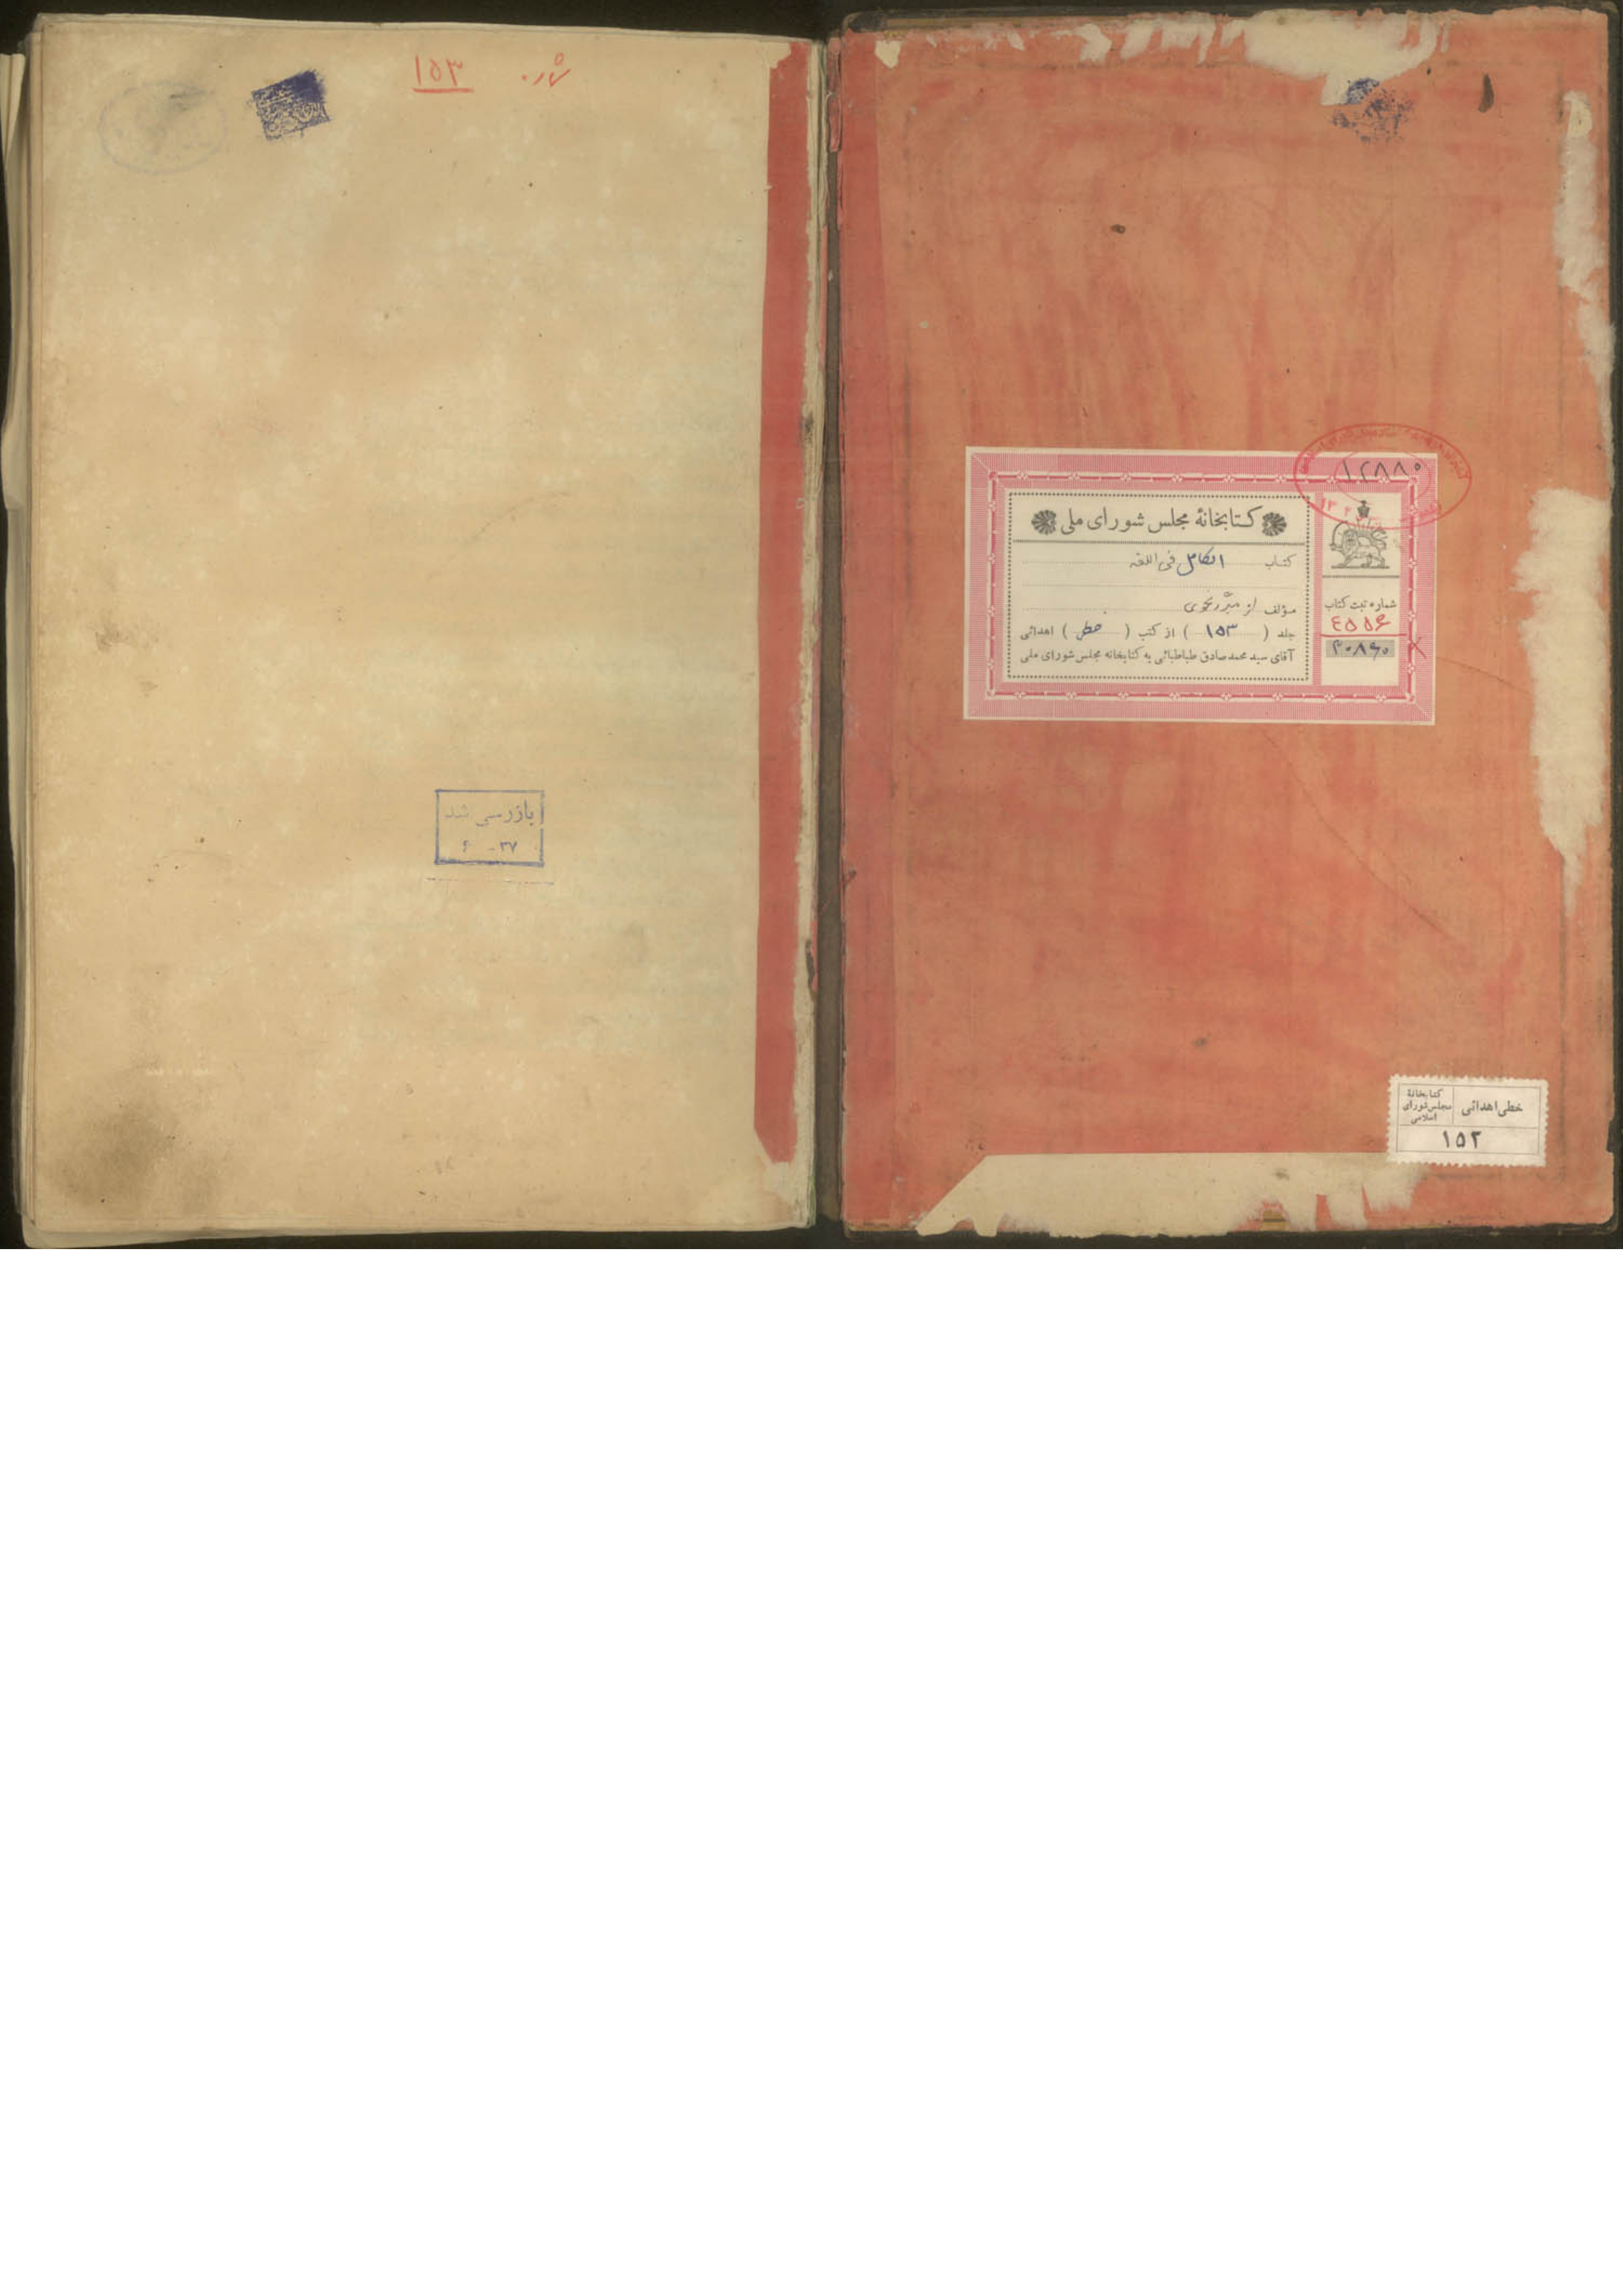 ۱۲۸۸۰
کتابخانهٔ مجلس شورای ملی
کتاب الکامل فی اللغه
مؤلف از مبرّد نحوی
جلد ( ۱۵۳ ) از کتب ( خطی ) اهدائی
آقای سید محمدصادق طباطبائی به کتابخانه مجلس شورای ملی
شماره ثبت کتاب
٤٥٥۶
۲۰۸۶۰
خطی اهدائی
کتابخانهٔ
مجلس شورای
اسلامی
۱۵۳
۱۵۳
بازرسی شد
۶ - ۳۷